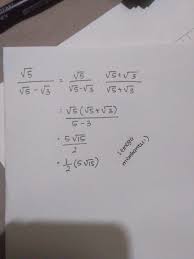 √5 / (√5 - √3) = √5 / (√5 - √3) (√5 + √3) / (√5 + √3)
= √5 (√5 + √3) / (5 - 3)
= 5√15 / 2
= 1/2 (5√15)